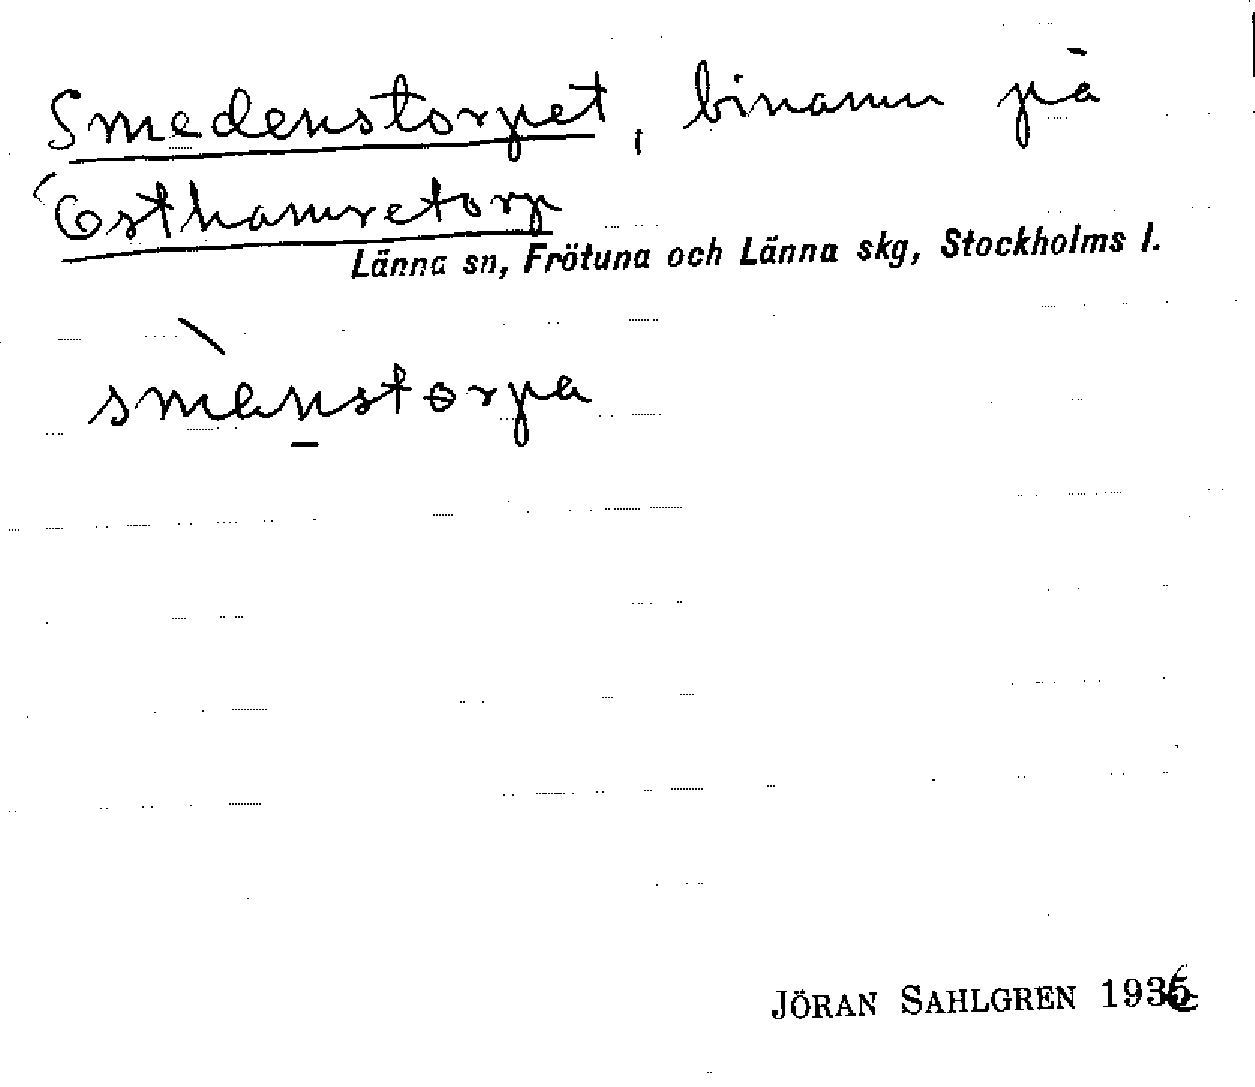 Smedenstorpet, binamn på
Östhamretorp
Länna sn, Frötuna och Länna skg, Stockholms l.
smènstorpa
JÖRAN SAHLGREN 1936